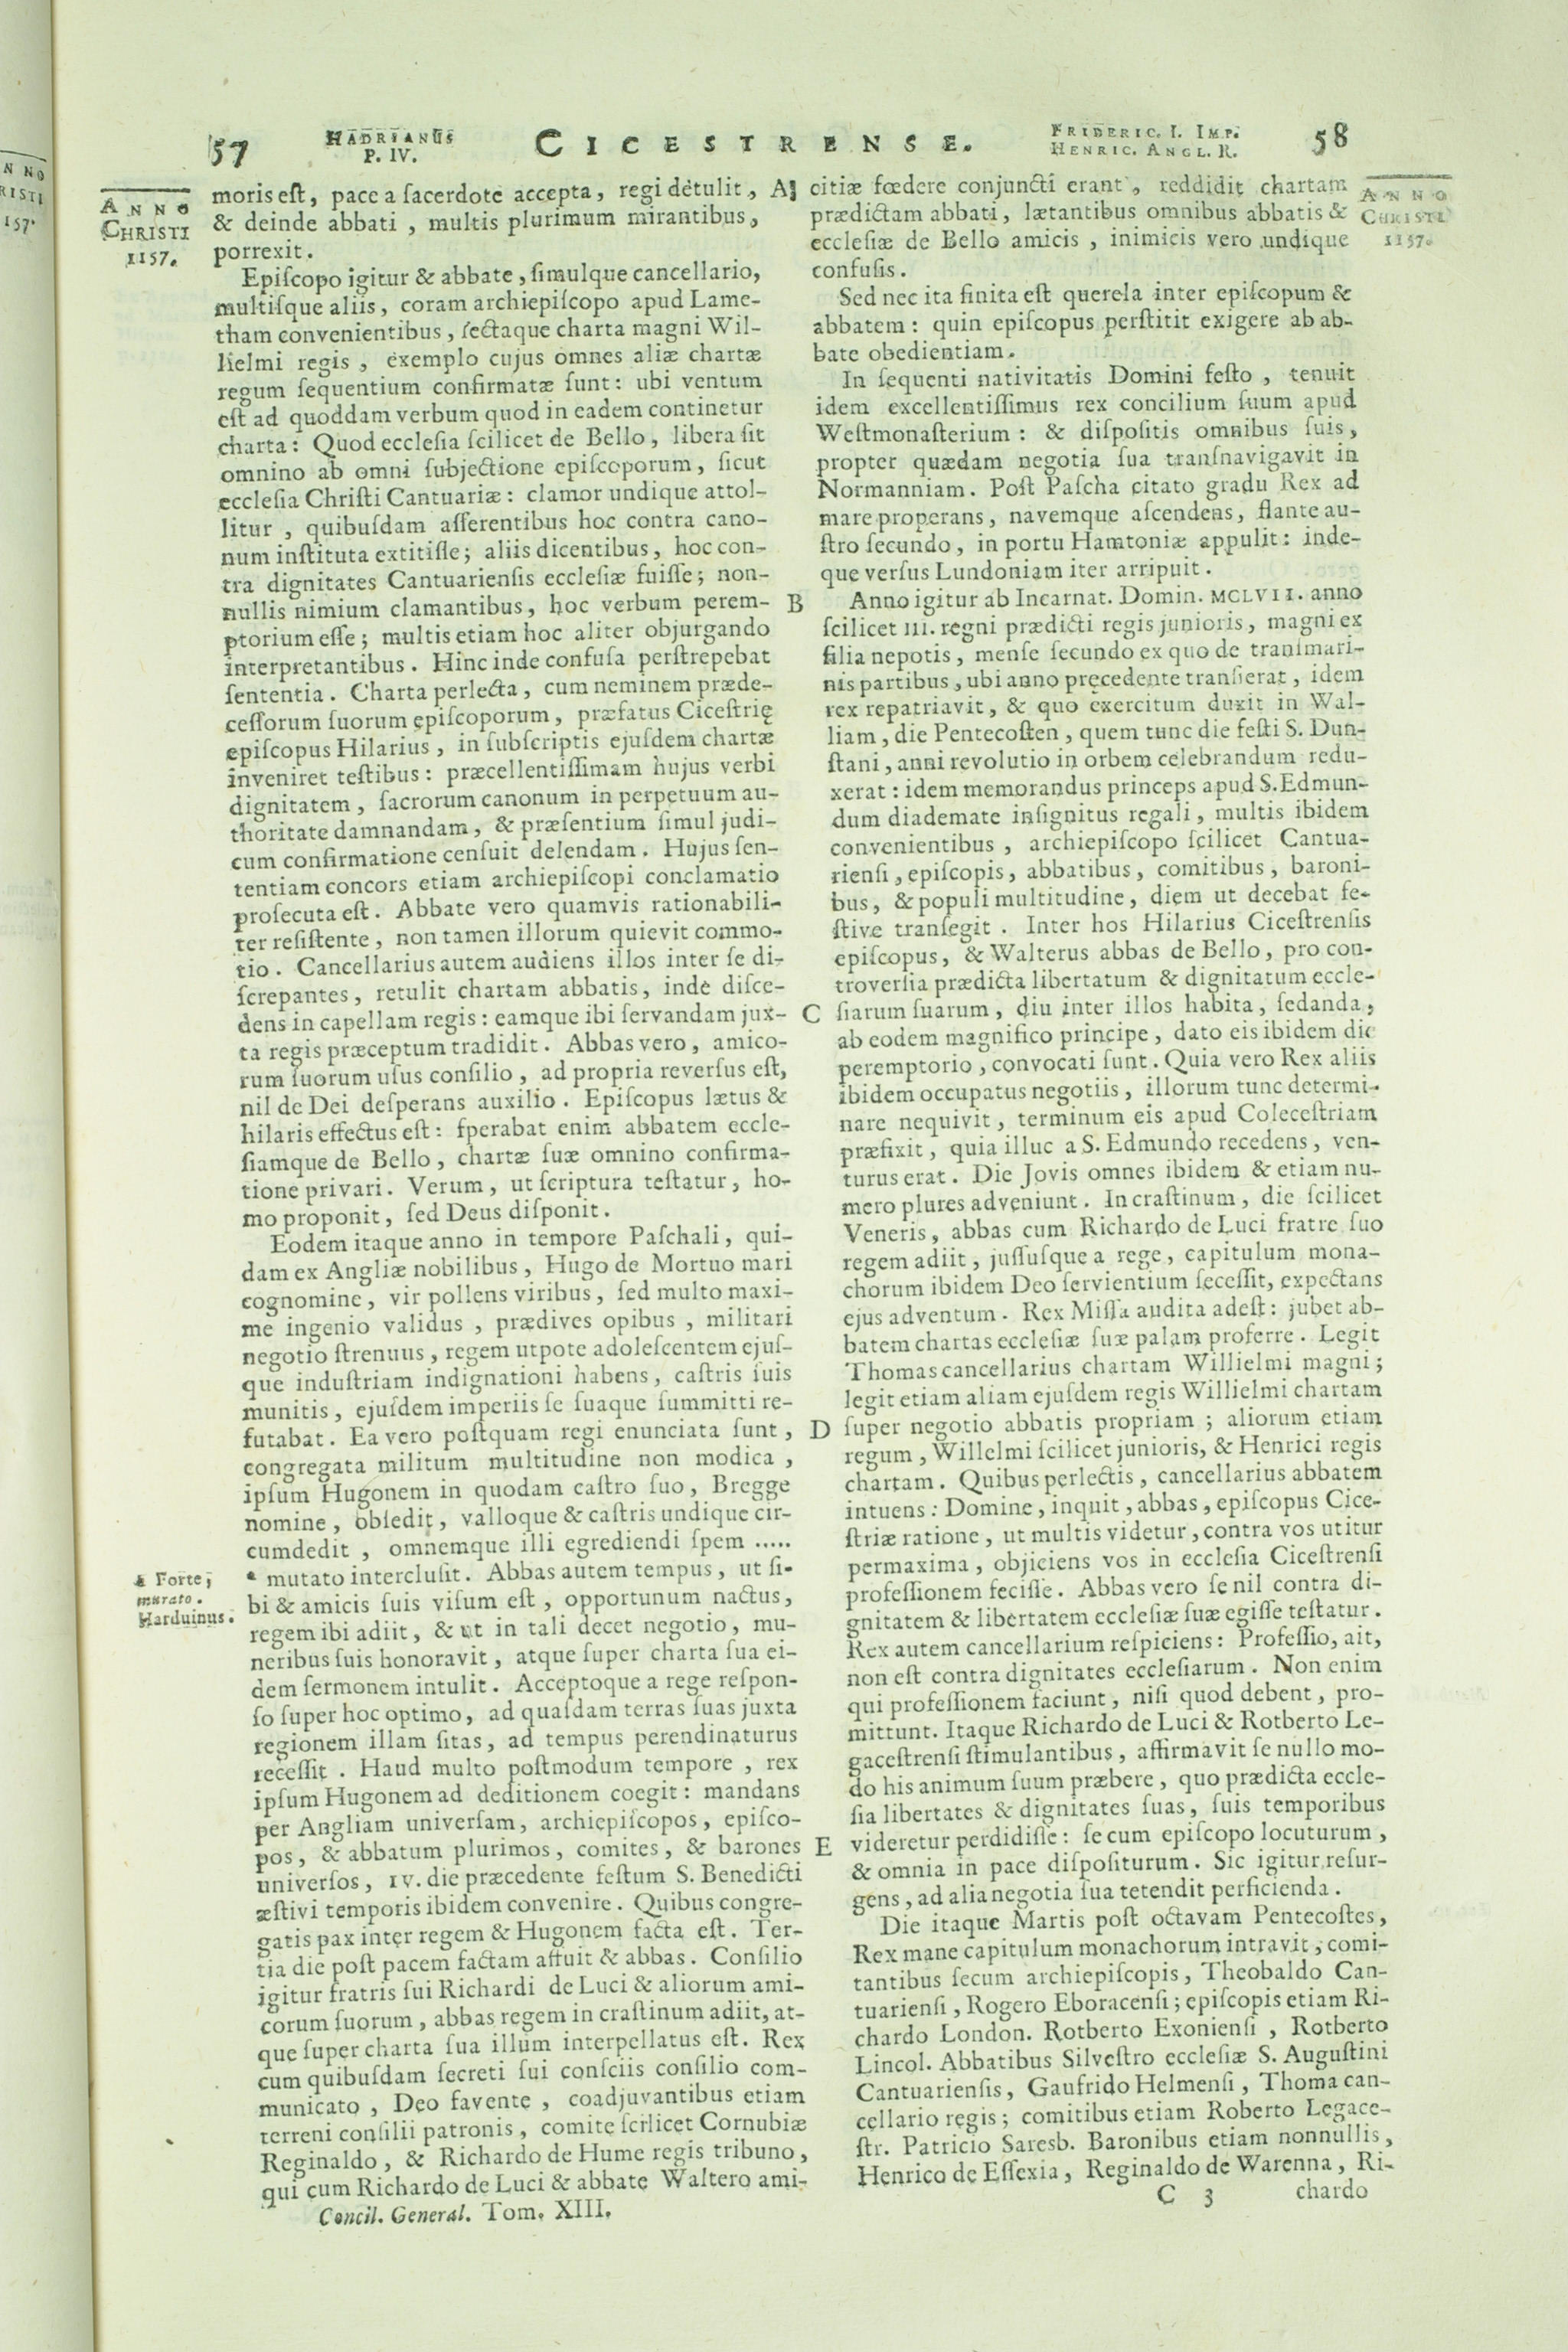 57
HADRIANUS
P. IV.
CICESTRENSE.
FRIDERIC. I. IMP.
HENRIC. ANGL. R.
58
ANNO
CHRISTI
1157.
moris est, pace a sacerdote accepta, regi detulit,
& deinde abbati, multis plurimum mirantibus,
porrexit.
Episcopo igitur & abbate, simulque cancellario,
multisque aliis, coram archiepiscopo apud Lame-
tham convenientibus, sectaque charta magni Wil-
lielmi regis, exemplo cujus omnes aliæ chartæ
regum sequentium confirmatæ sunt: ubi ventum
est ad quoddam verbum quod in eadem continetur
charta: Quod ecclesia scilicet de Bello, libera sit
omnino ab omni subjectione episcoporum, sicut
ecclesia Christi Cantuariæ: clamor undique attol-
litur, quibusdam asserentibus hoc contra cano-
num instituta extitisse; aliis dicentibus, hoc con-
tra dignitates Cantuariensis ecclesiæ fuisse; non-
nullis nimium clamantibus, hoc verbum perem-
ptorium esse; multis etiam hoc aliter objurgando
interpretantibus. Hinc inde confusa perstrepebat
sententia. Charta perlecta, cum neminem præde-
cessorum suorum episcoporum, præfatus Cicestrię
episcopus Hilarius, in subscriptis ejusdem chartæ
inveniret testibus: præcellentissimam hujus verbi
dignitatem, sacrorum canonum in perpetuum au-
thoritate damnandam, & præsentium simul judi-
cum confirmatione censuit delendam. Hujus sen-
tentiam concors etiam archiepiscopi conclamatio
prosecuta est. Abbate vero quamvis rationabili-
ter resistente, non tamen illorum quievit commo-
tio. Cancellarius autem audiens illos inter se di-
screpantes, retulit chartam abbatis, inde disce-
dens in capellam regis: eamque ibi servandam jux-
ta regis præceptum tradidit. Abbas vero, amico-
rum suorum usus consilio, ad propria reversus est,
nil de Dei desperans auxilio. Episcopus lætus &
hilaris effectus est: sperabat enim abbatem eccle-
siamque de Bello, chartæ suæ omnino confirma-
tione privari. Verum, ut scriptura testatur, ho-
mo proponit, sed Deus disponit.
Eodem itaque anno in tempore Paschali, qui-
dam ex Angliæ nobilibus, Hugo de Mortuo mari
cognomine, vir pollens viribus, sed multo maxi-
me ingenio validus, prædives opibus, militari
negotio strenuus, regem utpote adolescentem ejus-
que industriam indignationi habens, castris suis
munitis, ejusdem imperiis se suaque summitti re-
futabat. Ea vero postquam regi enunciata sunt,
congregata militum multitudine non modica,
ipsum Hugonem in quodam castro suo, Bregge
nomine, obsedit, valloque & castris undique cir-
cumdedit, omnemque illi egrediendi spem .....
a mutato interclusit. Abbas autem tempus, ut si-
bi & amicis suis visum est, opportunum nactus,
regem ibi adiit, & ut in tali decet negotio, mu-
neribus suis honoravit, atque super charta sua ei-
dem sermonem intulit. Acceptoque a rege respon-
so super hoc optimo, ad quasdam terras suas juxta
regionem illam sitas, ad tempus perendinaturus
recessit. Haud multo postmodum tempore, rex
ipsum Hugonem ad deditionem coegit: mandans
per Angliam universam, archiepiscopos, episco-
pos, & abbatum plurimos, comites, & barones
universos, IV. die præcedente festum S. Benedicti
æstivi temporis ibidem convenire. Quibus congre-
gatis pax inter regem & Hugonem facta est. Ter-
tia die post pacem factam affuit & abbas. Consilio
igitur fratris sui Richardi de Luci & aliorum ami-
corum suorum, abbas regem in crastinum adiit, at-
que super charta sua illum interpellatus est. Rex
cum quibusdam secreti sui consciis consilio com-
municato, Deo favente, coadjuvantibus etiam
terreni consilii patronis, comite scilicet Cornubiæ
Reginaldo, & Richardo de Hume regis tribuno,
qui cum Richardo de Luci & abbate Waltero ami-
a Forte,
murato.
Harduinus.
Concil. General. Tom. XIII.
A
B
C
D
E
citiæ fœdere conjuncti erant, reddidit chartam
prædictam abbati, lætantibus omnibus abbatis &
ecclesiæ de Bello amicis, inimicis vero undique
confusis.
Sed nec ita finita est querela inter episcopum &
abbatem: quin episcopus perstitit exigere ab ab-
bate obedientiam.
In sequenti nativitatis Domini festo, tenuit
idem excellentissimus rex concilium suum apud
Westmonasterium: & dispositis omnibus suis,
propter quædam negotia sua transnavigavit in
Normanniam. Post Pascha citato gradu Rex ad
mare properans, navemque ascendens, flante au-
stro secundo, in portu Hamtoniæ appulit: inde-
que versus Lundoniam iter arripuit.
Anno igitur ab Incarnat. Domin. MCLVII. anno
scilicet III. regni prædicti regis junioris, magni ex
filia nepotis, mense secundo ex quo de transmari-
nis partibus, ubi anno pręcedente transierat, idem
rex repatriavit, & quo exercitum duxit in Wal-
liam, die Pentecosten, quem tunc die festi S. Dun-
stani, anni revolutio in orbem celebrandum redu-
xerat: idem memorandus princeps apud S. Edmun-
dum diademate insignitus regali, multis ibidem
convenientibus, archiepiscopo scilicet Cantua-
riensi, episcopis, abbatibus, comitibus, baroni-
bus, & populi multitudine, diem ut decebat fe-
stive transegit. Inter hos Hilarius Cicestrensis
episcopus, & Walterus abbas de Bello, pro con-
troversia prædicta libertatum & dignitatum eccle-
siarum suarum, diu inter illos habita, sedanda,
ab eodem magnifico principe, dato eis ibidem die
peremptorio, convocati sunt. Quia vero Rex aliis
ibidem occupatus negotiis, illorum tunc determi-
nare nequivit, terminum eis apud Colecestriam
præfixit, quia illuc a S. Edmundo recedens, ven-
turus erat. Die Jovis omnes ibidem & etiam nu-
mero plures adveniunt. In crastinum, die scilicet
Veneris, abbas cum Richardo de Luci fratre suo
regem adiit, jussusque a rege, capitulum mona-
chorum ibidem Deo servientium secessit, expectans
ejus adventum. Rex Missa audita adest: jubet ab-
batem chartas ecclesiæ suæ palam proferre. Legit
Thomas cancellarius chartam Willielmi magni;
legit etiam aliam ejusdem regis Willielmi chartam
super negotio abbatis propriam; aliorum etiam
regum, Willelmi scilicet junioris, & Henrici regis
chartam. Quibus perlectis, cancellarius abbatem
intuens: Domine, inquit, abbas, episcopus Cice-
striæ ratione, ut multis videtur, contra vos utitur
permaxima, objiciens vos in ecclesia Cicestrensi
professionem fecisse. Abbas vero se nil contra di-
gnitatem & libertatem ecclesiæ suæ egisse testatur.
Rex autem cancellarium respiciens: Professio, ait,
non est contra dignitates ecclesiarum. Non enim
qui professionem faciunt, nisi quod debent, pro-
mittunt. Itaque Richardo de Luci & Rotberto Le-
gacestrensi stimulantibus, affirmavit se nullo mo-
do his animum suum præbere, quo prædicta eccle-
sia libertates & dignitates suas, suis temporibus
videretur perdidisse: se cum episcopo locuturum,
& omnia in pace dispositurum. Sic igitur resur-
gens, ad alia negotia sua tetendit perficienda.
Die itaque Martis post octavam Pentecostes,
Rex mane capitulum monachorum intravit, comi-
tantibus secum archiepiscopis, Theobaldo Can-
tuariensi, Rogero Eboracensi; episcopis etiam Ri-
chardo London. Rotberto Exoniensi, Rotberto
Lincol. Abbatibus Silvestro ecclesiæ S. Augustini
Cantuariensis, Gaufrido Helmensi, Thoma can-
cellario regis; comitibus etiam Roberto Legace-
str. Patricio Saresb. Baronibus etiam nonnullis,
Henrico de Essexia, Reginaldo de Warenna, Ri-
C 3
chardo
ANNO
CHRISTI
1157.